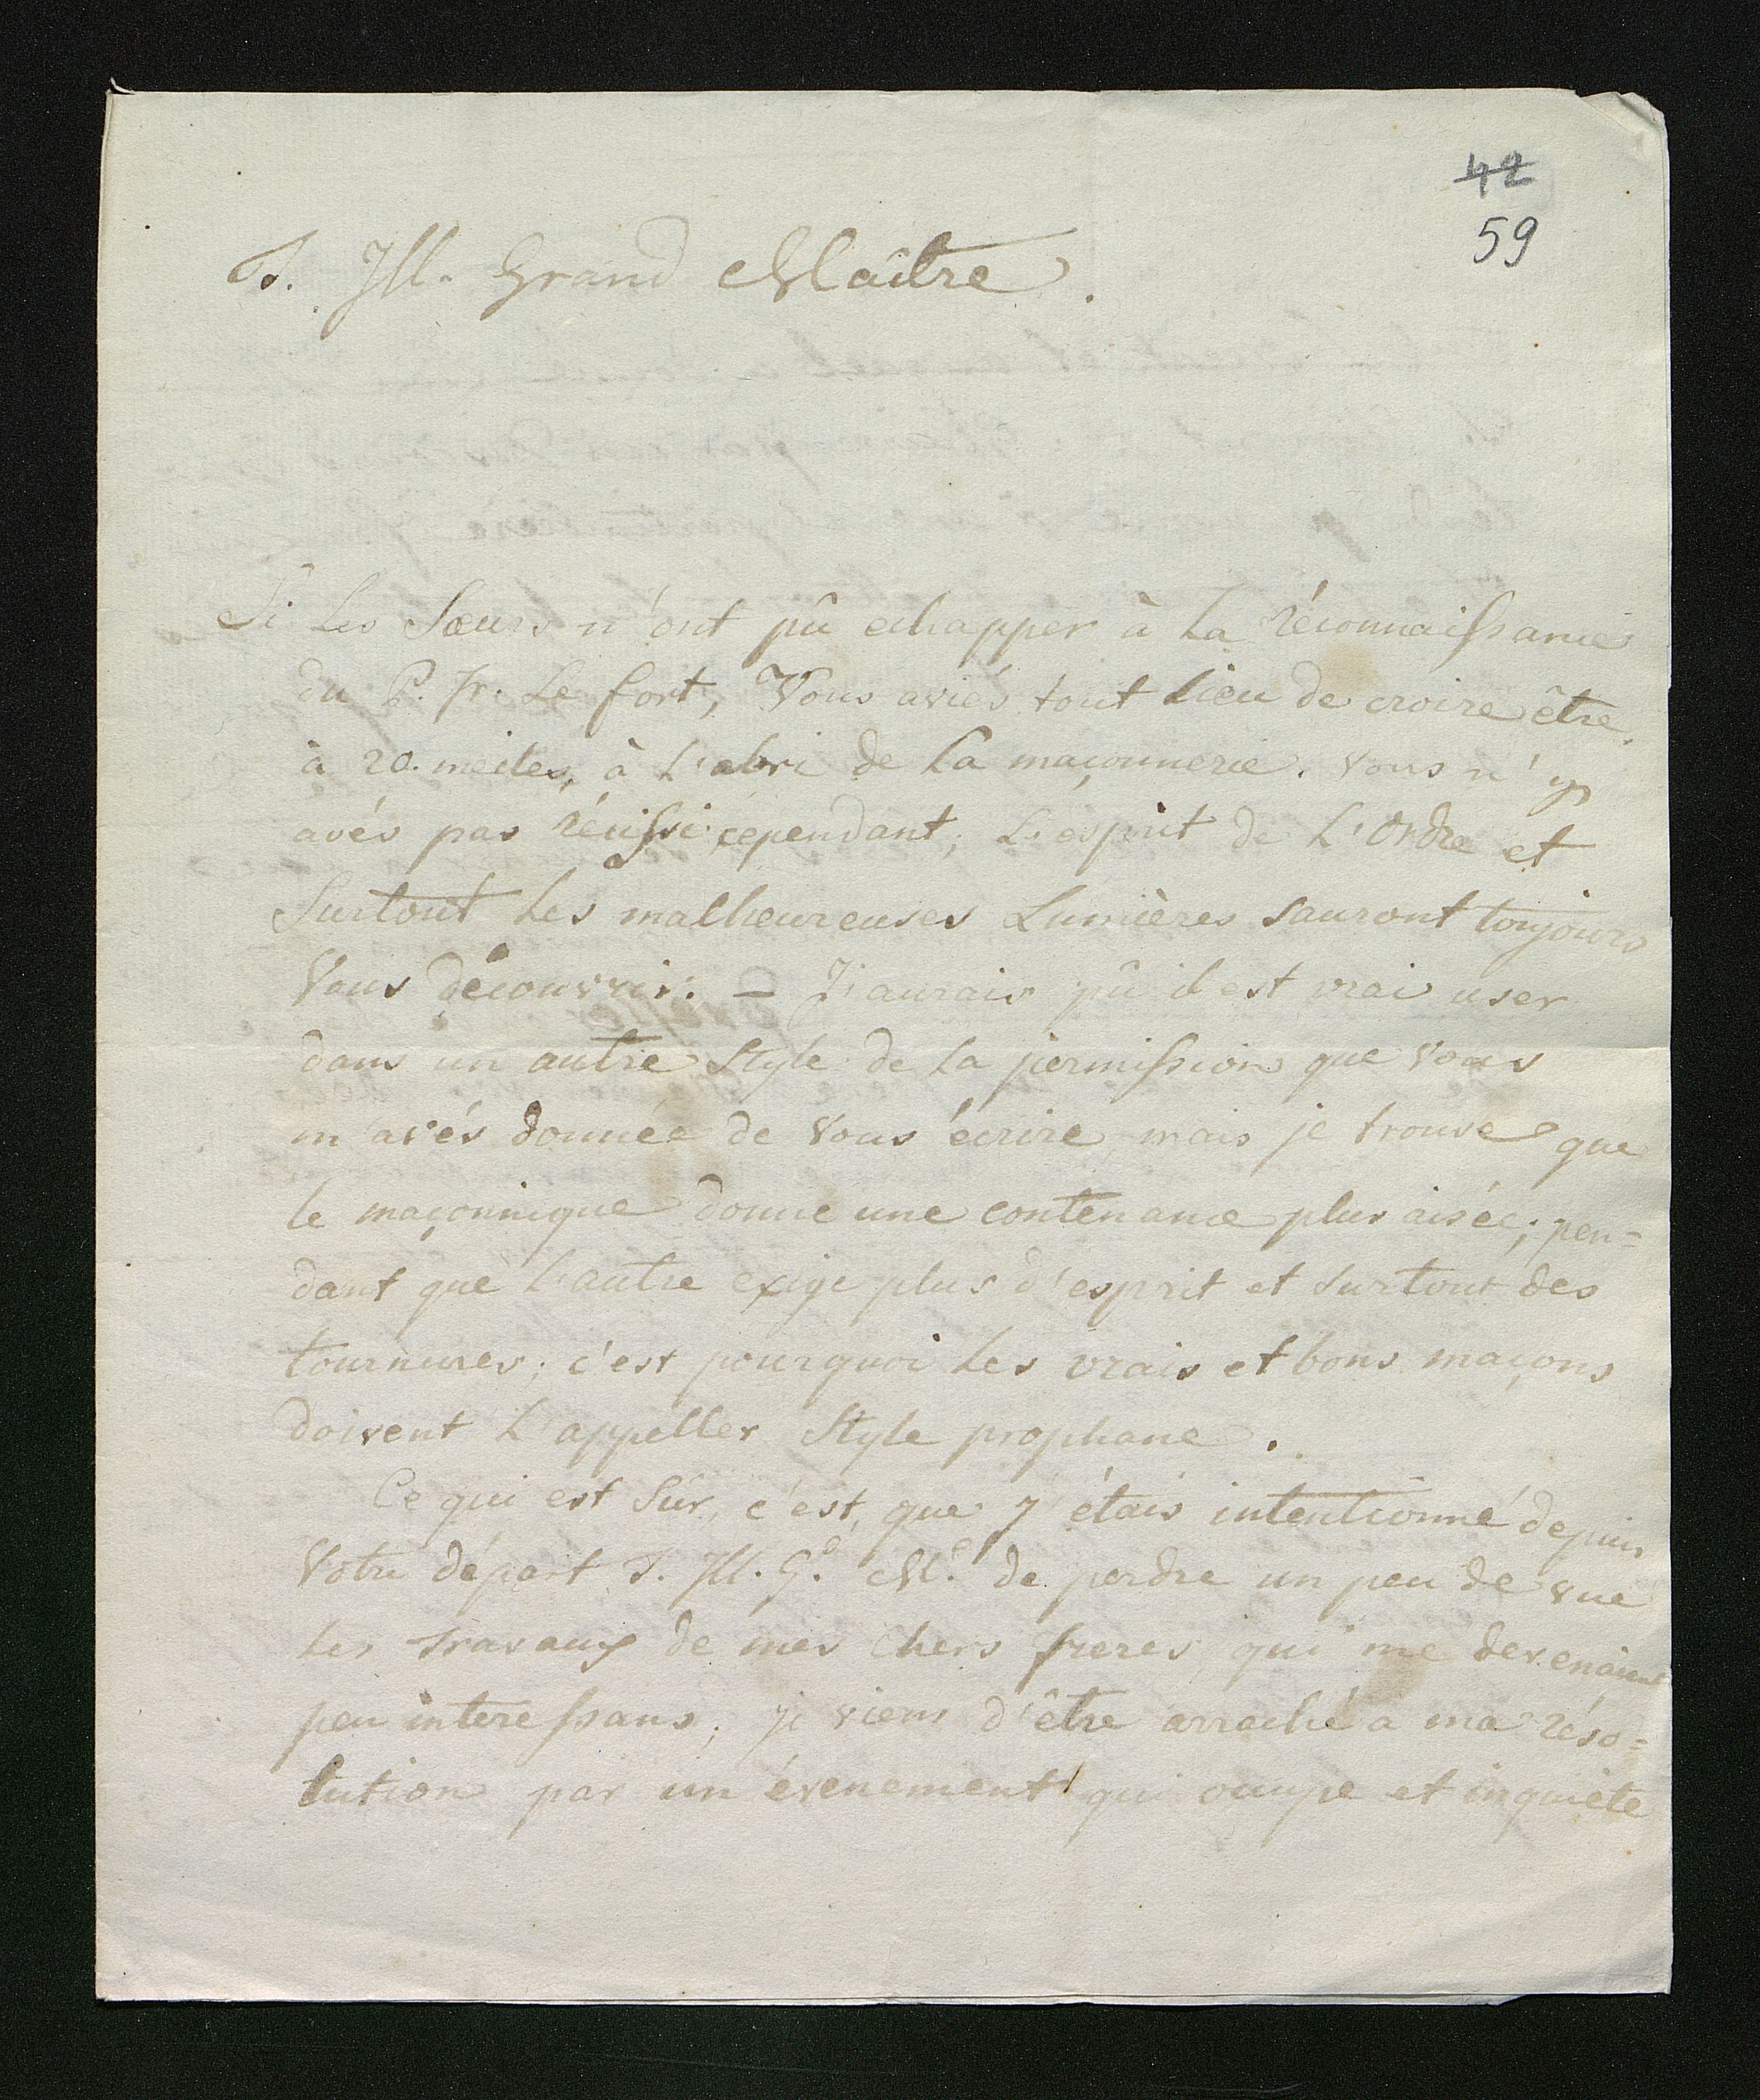 42
59
T. Ill. Grand Maître.
Si les Sœurs n'ont pû echapper à la réconnaissance
du P. fr. Le fort, Vous aviés tout lieu de croire être,
à 20. meiles, à l'abri de la maçonnerie. Vous n'y
avés pas réussi cependant; L'esprit de L'Ordre et
Surtout les malheureuses Lumières sauront toujours
Vous découvrir. — J'aurais pû il est vrai user
dans un autre Style de la permission que Vous
m'avés donnée de Vous écrire mais je trouve que
le maçonnique donne une contenance plus aisée; pen=
dant que l'autre exige plus d'esprit et surtout des
tournures; c'est pourquoi les vrais et bons maçons
doivent l'appeller Style prophane.
Ce qui est Sûr, c'est, que j'étais intentionné depuis
Votre départ T. Ill. Gd. Me. de perdre un peu de vue
les travaux de mes chers freres, qui me devenaient
peu interessans; je viens d'être arraché a ma réso=
lution par un évenement qui occupe et inquiète